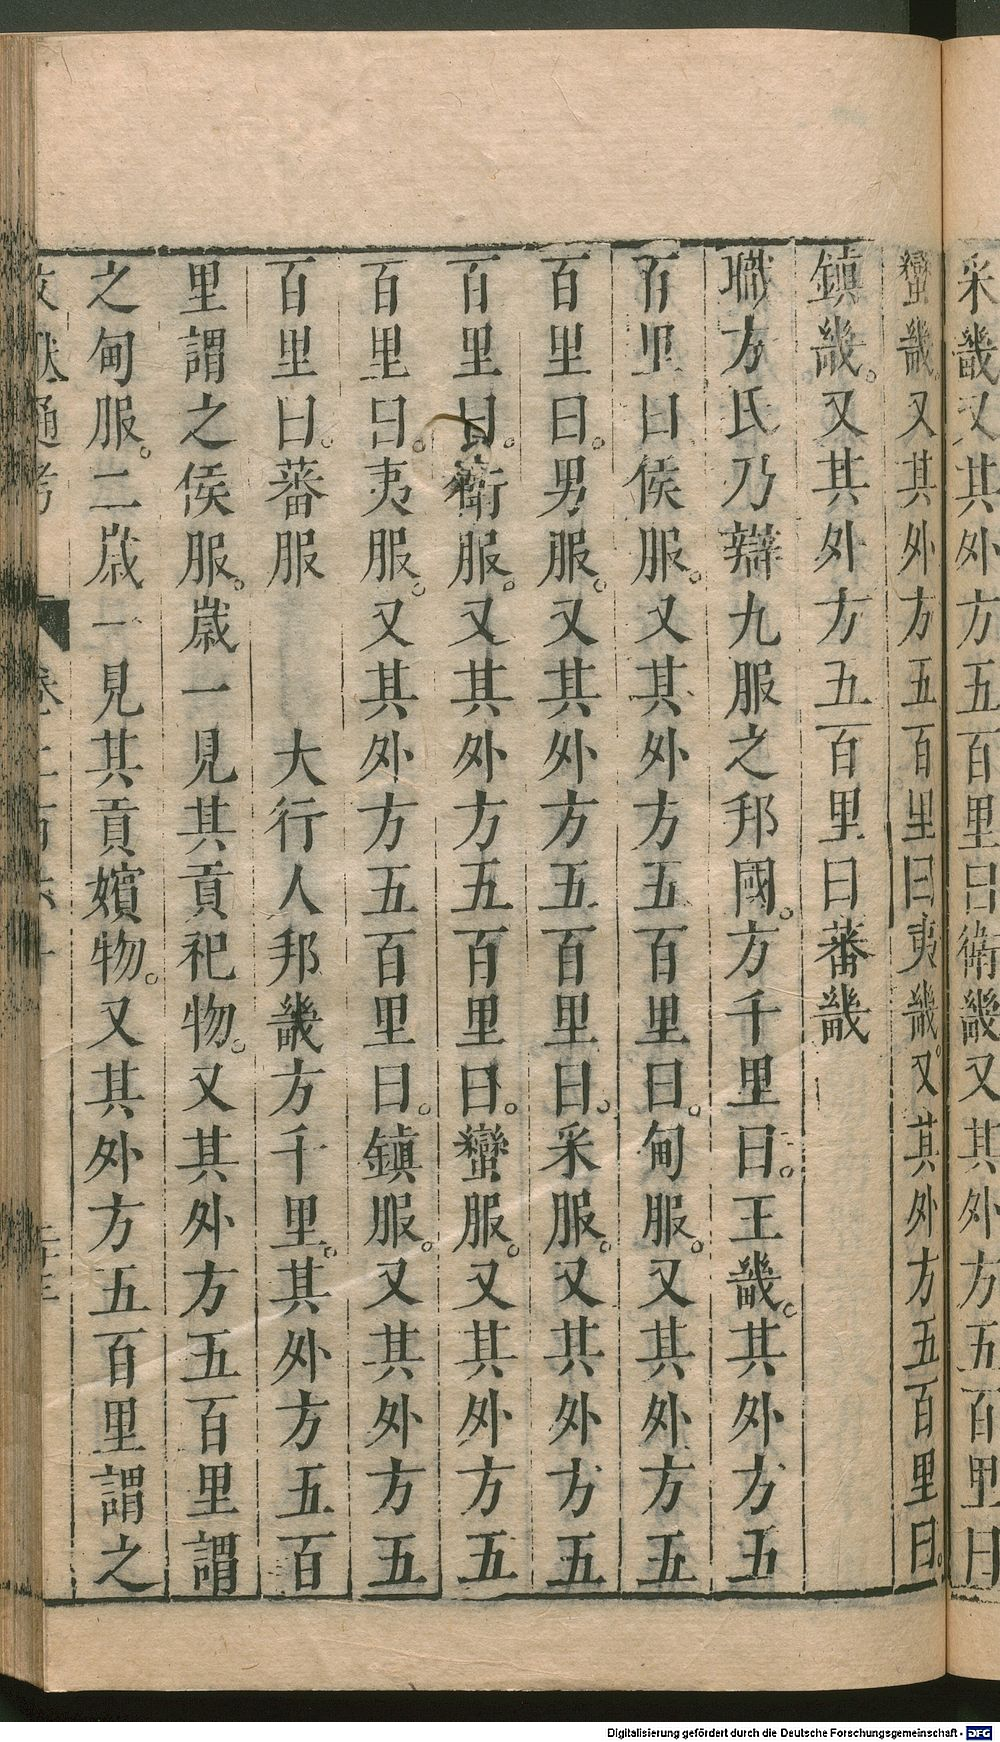 采畿又其外方五百里曰衛畿又其外方五百里曰
蠻畿。又其外方五百里曰夷畿。又其外方五百里曰。
鎮畿。又其外方五百里曰蕃畿
職方氏乃辯九服之邦國。方千里曰。王畿。其外方五
百里曰侯服。又其外方五百里曰。甸服。又其外方五
百里曰。男服。又其外方五百里曰。采服。又其外方五
百里曰。衛服。又其外方五百里曰。蠻服。又其外方五
百里曰。夷服。又其外方五百里曰。鎮服。又其外方五
百里曰。蕃服 大行人邦畿方千里。其外方五百
里謂之侯服。歲一見其貢祀物。又其外方五百里謂
之甸服。二歲一見其貢嬪物。又其外方五百里謂之
文獻通考
Digitalisierung gefördert durch die Deutsche Forschungsgemeinschaft - DFG